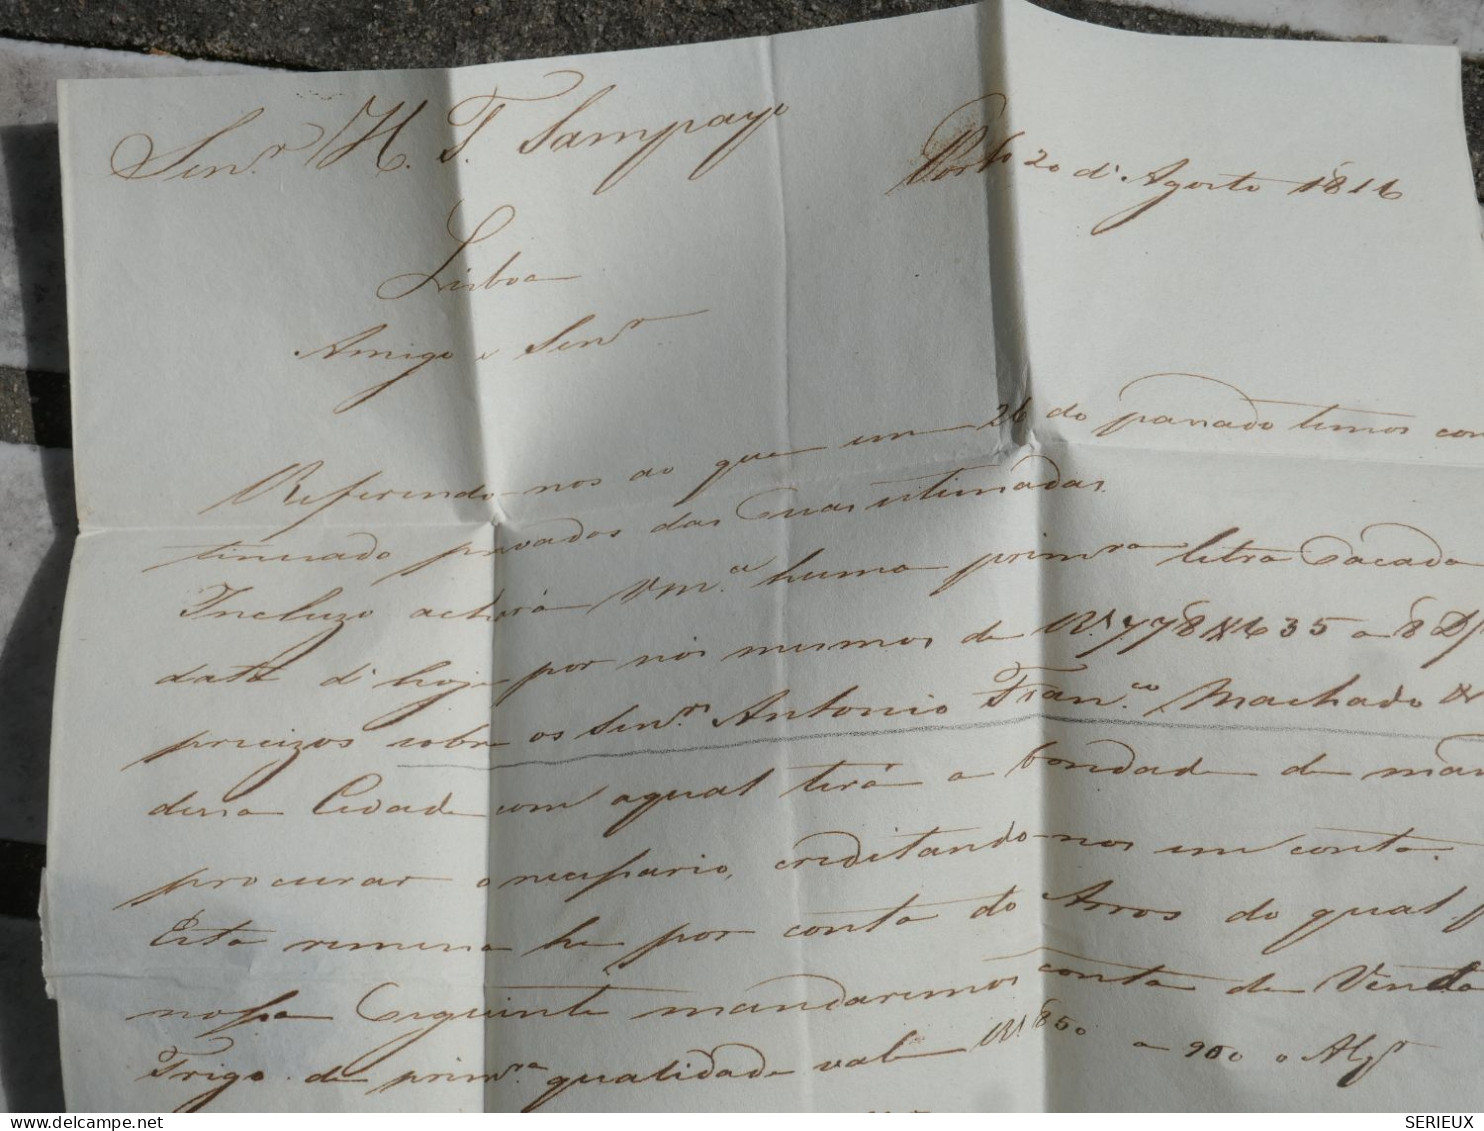 Sen.r H. T. Sampayo
Porto 20 d'Agosto 1816
Lisboa
Amigo e Sen.r
Referendo-nos ao que em 26 do passado temos con
tinuado privados das Suas estimadas.
Incluzo achará Vm.ce huma prim.ra letra Sacada
data d'hoje por nós mesmos de R.s 778$635 a 8 D/
precizos sobre os Sen.rs Antonio Fran.co Machado &
dessa Cidade com aqual terá a bondade de man
procurar o necessario, creditando-nos em conta.
Esta remessa he por conta do Arros do qual p
nossa Seguinte mandaremos conta de Venda
Trigo de prim.ra qualidade vale R.s 850 a 900 o Alq.r
SERIEUX
delcampe.net